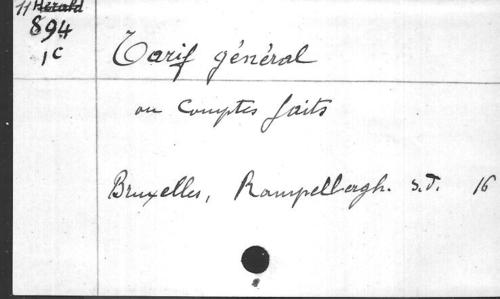 11 Hérald
894
1C
Tarif général
ou Comptes faits
Bruxelles, Rampelbergh. s.d. 16